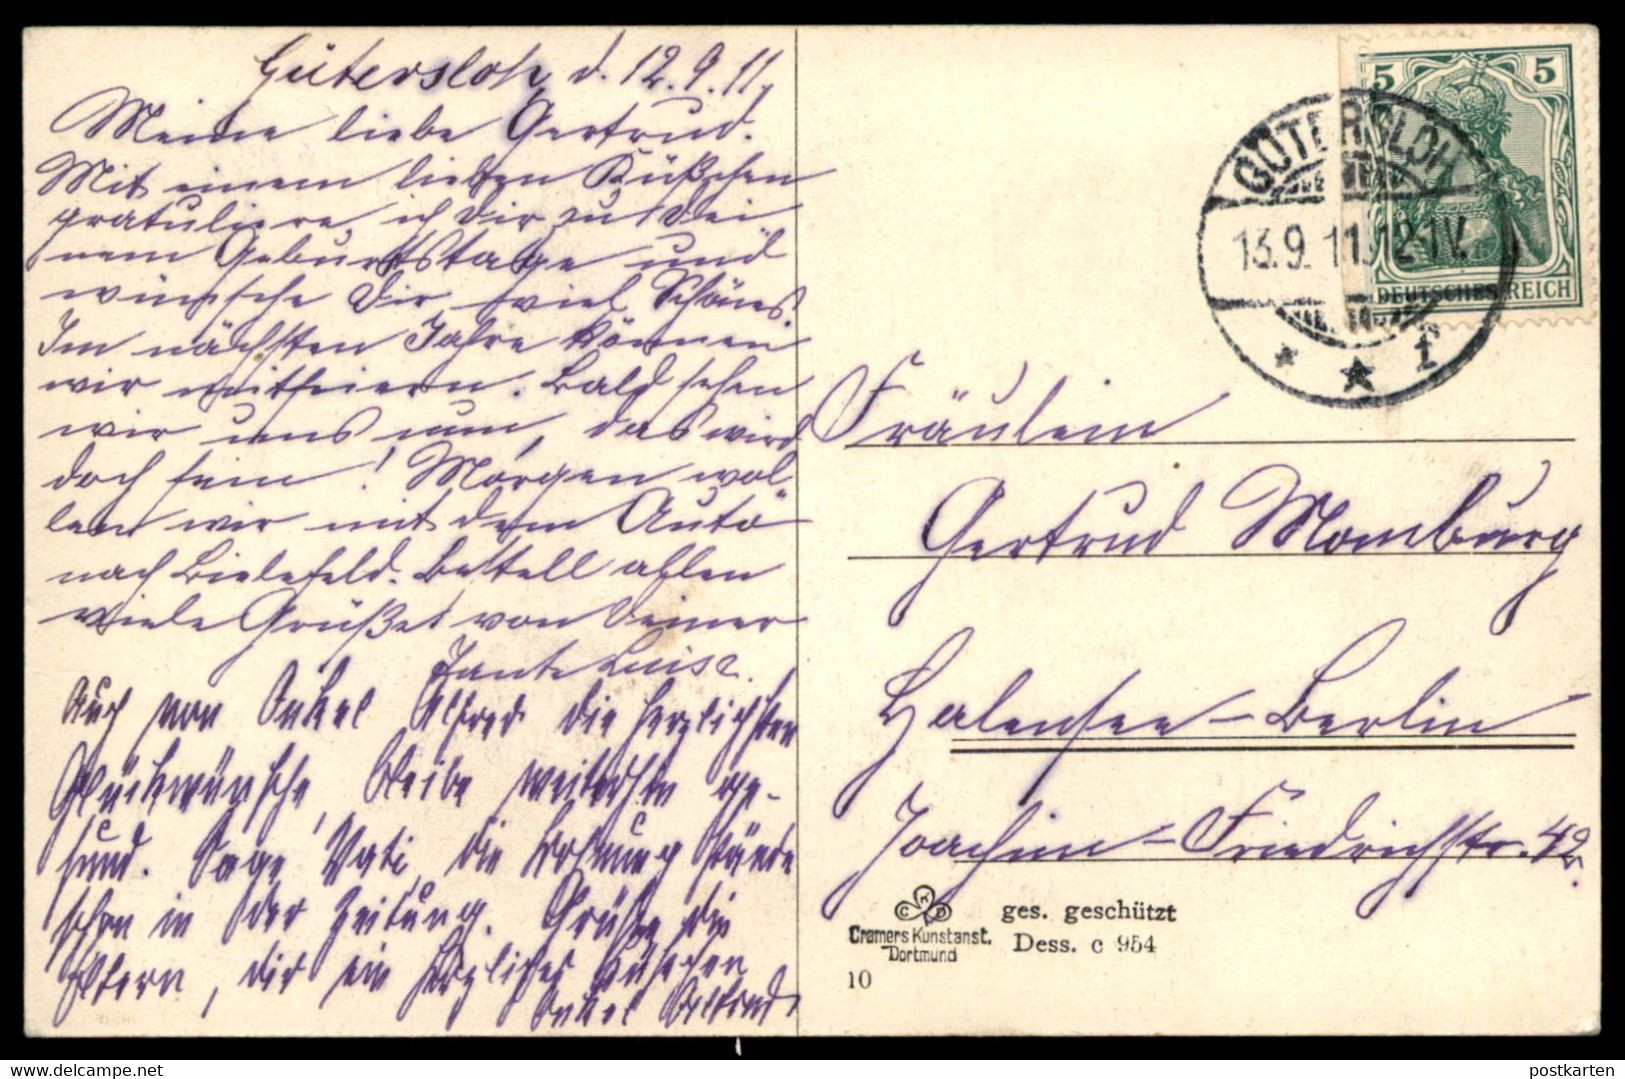 Gütersloh, d. 12.9.11.
Meine liebe Gertrud.
Mit einem lieben Küßchen
gratuliere ich Dir zu Dei
nem Geburtstage und
wünsche Dir viel Schönes.
Im nächsten Jahre können
wir mitfeiern. Bald sehen
wir uns nun, das wird
doch fein! Morgen wol
len wir mit dem Auto
nach Bielefeld. Bestell allen
viele Grüße von Deiner
Tante Luise.
Auch von Onkel Alfred die herzlichsten
Glückwünsche, bleibe weiterhin ge-
sund. Sage Vati, die Wohnung stände
schon in der Zeitung. Grüße die
Eltern, dir ein herzliches Küßchen
Onkel Alfred
5 5
DEUTSCHES REICH
GÜTERSLOH
13.9.11.12-1V.
* ★ f
Fräulein
Gertrud Momburg
Halensee-Berlin
Joachim-Friedrichstr. 42.
CKD
Cramers Kunstanst.
Dortmund
ges. geschützt
Dess. c 954
10
postkarten